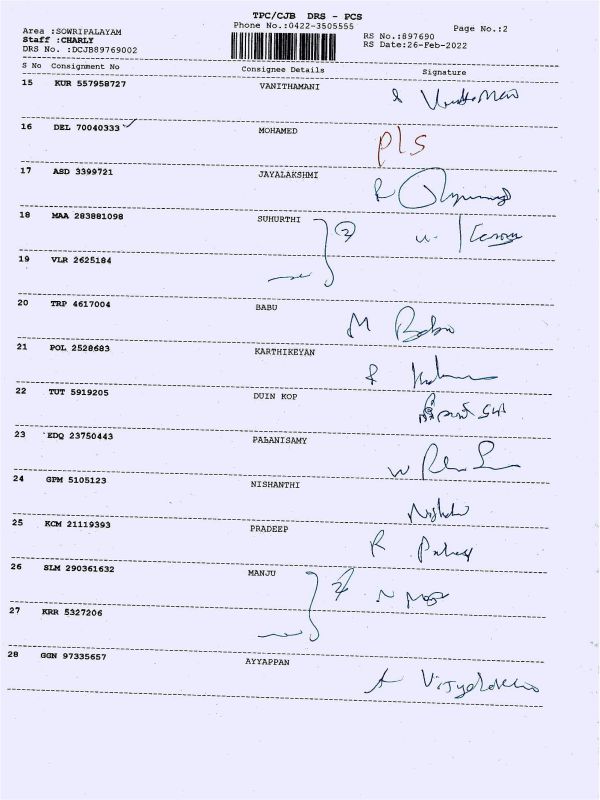 TPC/CJB DRS - PCS
Area :SOWRIPALAYAM Phone No.:0422-3505555 Page No.:2
Staff :CHARLY RS No.:897690
DRS No. :DCJB89769002 RS Date:26-Feb-2022
S No Consignment No Consignee Details Signature
15 KUR 557958727 VANITHAMANI
16 DEL 70040333 MOHAMED pls
17 ASD 3399721 JAYALAKSHMI R
18 MAA 283881098 SUHURTHI 2
19 VLR 2625184
20 TRP 4617004 BABU M Babu
21 POL 2528683 KARTHIKEYAN
22 TUT 5919205 DUIN KOP
23 EDQ 23750443 PALANISAMY
24 GPM 5105123 NISHANTHI
25 KCM 21119393 PRADEEP R
26 SLM 290361632 MANJU 2
27 KRR 5327206
28 GGN 97335657 AYYAPPAN